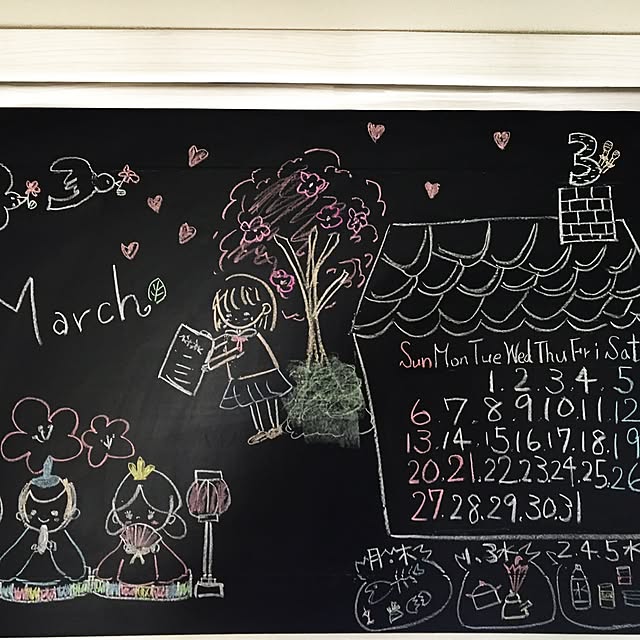 3
March
Sun Mon Tue Wed Thu Fri Sat
1. 2. 3. 4. 5
6 7. 8 9 10. 11 12
13. 14. 15 16. 17. 18. 19
20. 21. 22. 23. 24. 25. 26
27. 28. 29. 30. 31
月・木 1.3水 2.4.5水